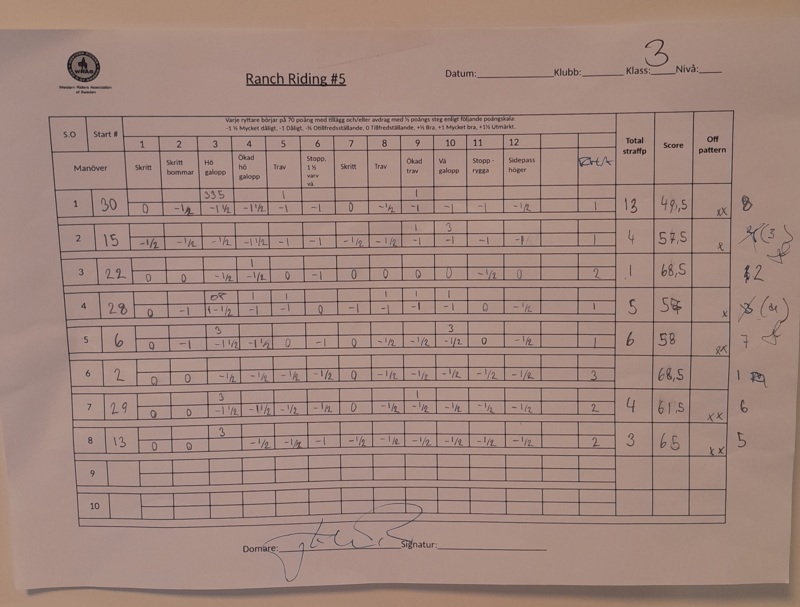 3
WRAS
Western Riders Association
of Sweden
Ranch Riding #5
Datum:____________ Klubb:________ Klass:____ Nivå:____
Varje ryttare börjar på 70 poäng med tillägg och/eller avdrag med ½ poängs steg enligt följande poängskala:
-1 ½ Mycket dåligt, -1 Dåligt, -½ Otillfredsställande, 0 Tillfredsställande, +½ Bra, +1 Mycket bra, +1½ Utmärkt.
S.O Start # 1 2 3 4 5 6 7 8 9 10 11 12 Total straffp Score Off pattern
Manöver Skritt Skritt bommar Hö galopp Ökad hö galopp Trav Stopp, 1 ½ varv vä Skritt Trav Ökad trav Vä galopp Stopp - rygga Sidepass höger
335 1 1
1 30 0 -1/2 -1 1/2 -1 1/2 -1 -1 0 -1/2 -1 -1 -1 -1/2 1 13 49,5 xx 8
1 3
2 15 -1/2 -1/2 -1/2 -1 1/2 -1 -1 -1/2 -1/2 -1 -1 -1 -1 1 4 57,5 x (3)
1
3 22 0 0 -1/2 -1/2 0 -1 0 0 0 0 -1/2 0 2 1 68,5 2
1 1 1 1 1
4 28 0 -1 -1/2 -1 -1 0 -1 -1 -1 -1 0 -1/2 1 5 x
3 3
5 6 0 -1 -1 1/2 -1 1/2 0 -1 0 -1/2 -1/2 -1/2 0 -1/2 1 6 58 xx 7
6 2 0 0 -1/2 -1/2 -1/2 -1/2 0 -1/2 -1/2 -1/2 -1/2 -1/2 3 68,5 1
3 1
7 29 0 0 -1 1/2 -1 1/2 -1/2 -1/2 0 -1/2 -1/2 -1/2 -1/2 -1/2 2 4 61,5 xx 6
3
8 13 0 0 -1/2 -1/2 -1 -1/2 -1/2 -1/2 -1/2 -1/2 -1/2 2 3 65 xx 5
9
10
Domare:____________________ Signatur:__________________